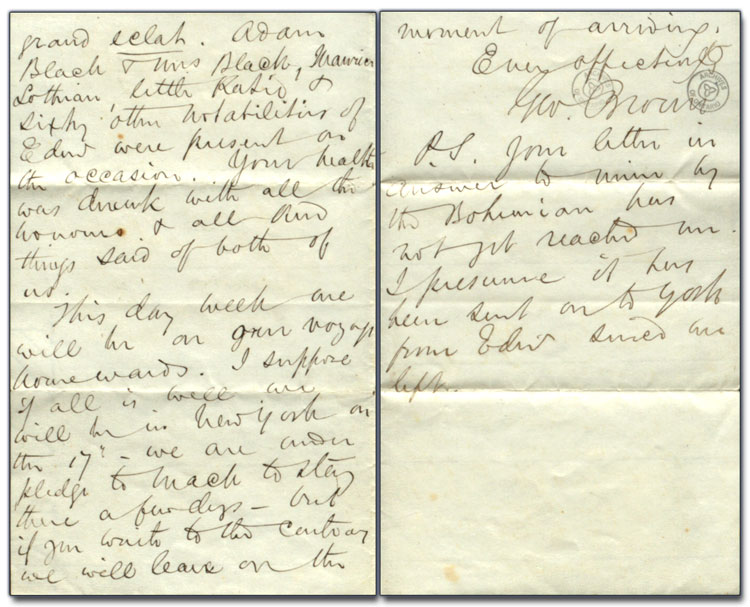 grand eclat. Adam
Black & Mrs Black, Maurice
Lothian, little Katie &
sixty other notabilities of
Edinr were present on
the occasion. Your health
was drunk with all the
honours & all kind
things said of both of
us.
This day week we
will be on our voyage
homewards. I suppose
if all is well we
will be in New York on
the 17th - we are under
pledge to Mack to stay
there a few days - but
if you write to the contrary
we will leave on the
moment of arriving.
Ever affectiony
Geo. Brown
P.S. Your letter in
answer to mine by
the Bohemian has
not yet reached me.
I presume it has
been sent on to York
from Edinr since we
left.